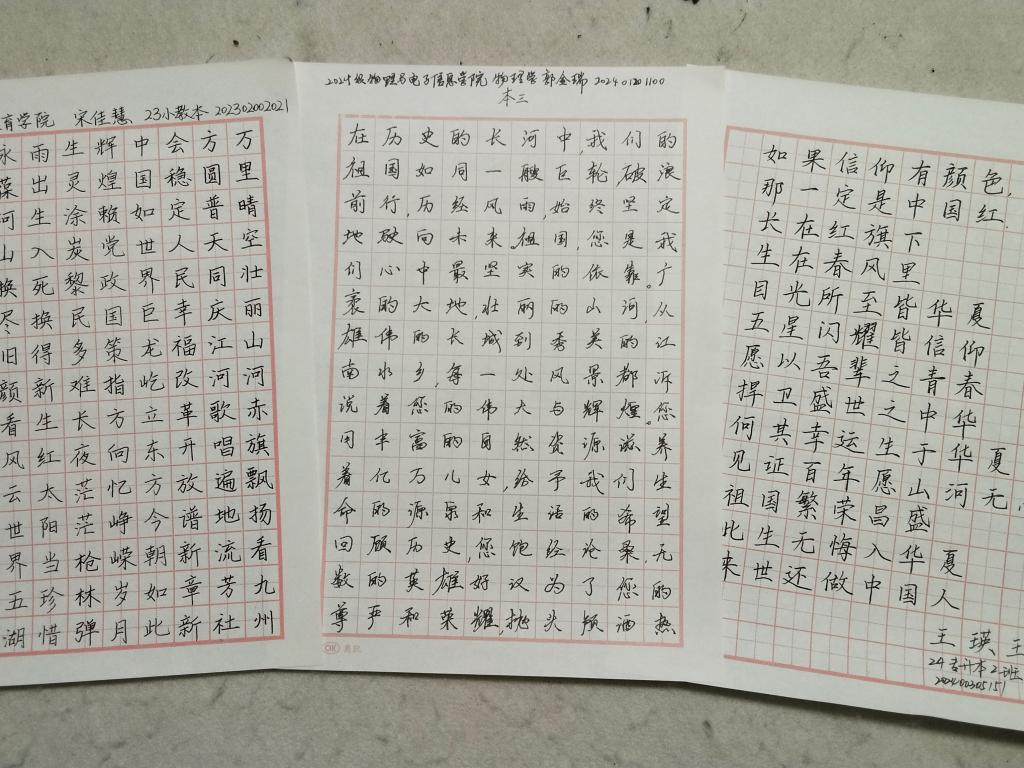 育学院 宋佳慧 23小教本 202302002021
万里晴空壮丽山河赤旗飘扬看九州
方圆普天同庆江河歌唱遍地流芳社
会稳定人民幸福改革开放谱新章新
中国如世界巨龙屹立东方今朝如此
辉煌赖党政国策指方向忆峥嵘岁月
生灵涂炭黎民多难长夜茫茫枪林弹
雨出生入死换得新生红太阳当珍惜
永葆河山换尽旧颜看风云世界五湖
2024级物理与电子信息学院 物理学 郭金瑞 202401201100
本三
在历史的长河中,我们的
祖国如同一艘巨轮,破浪
前行,历经风雨,始终坚定
地驶向未来.祖国,您是我
们心中最坚实的依靠。广
袤的大地,壮丽的山河,从
雄伟的长城到秀美的江
南水乡,每一处风景都诉
说着您的伟大与辉煌。您
用丰富的自然资源滋养
着亿万儿女,给予我们生
命的源泉和生活的希望
回顾历史,您饱经沧桑,无
数的英雄好汉为了您的
尊严和荣耀,抛头颅洒热
如果信仰有颜色,
那一定是中国红.
长在红旗下
生在春风里
目光所至皆华夏
五星闪耀皆信仰
愿以吾辈之青春
捍卫盛世之中华
何其幸运生于华夏
见证百年愿山河无
祖国繁荣昌盛
此生无悔入华夏
来世还做中国人
王瑛王
24专升本2班
202400305151